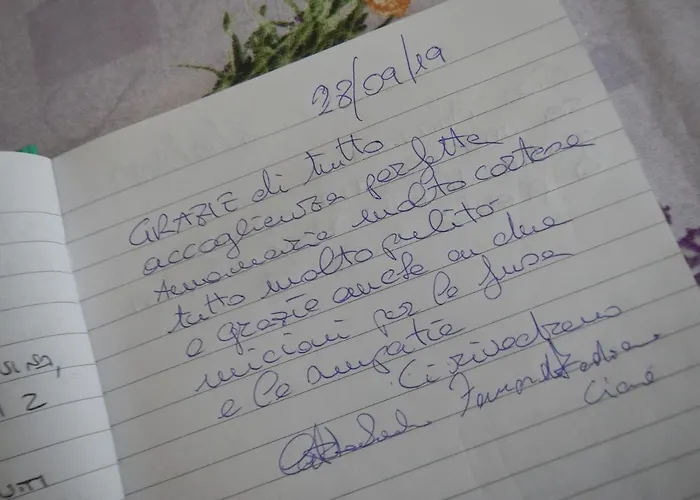 28/09/19
GRAZIE di tutto
accoglienza perfetta
Annamaria molto cortese
tutto molto pulito
e grazie anche ai due
micioni per le fusa
e le simpatie
Ci rivedremo
Ciao